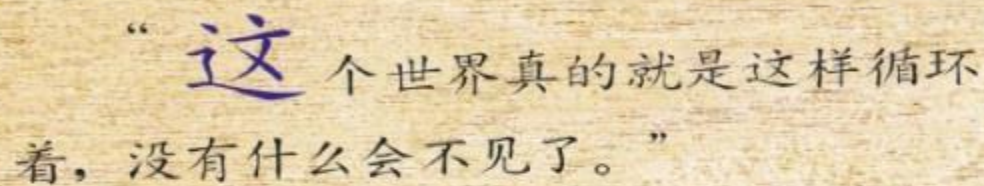 “这个世界真的就是这样循环
着，没有什么会不见了。”